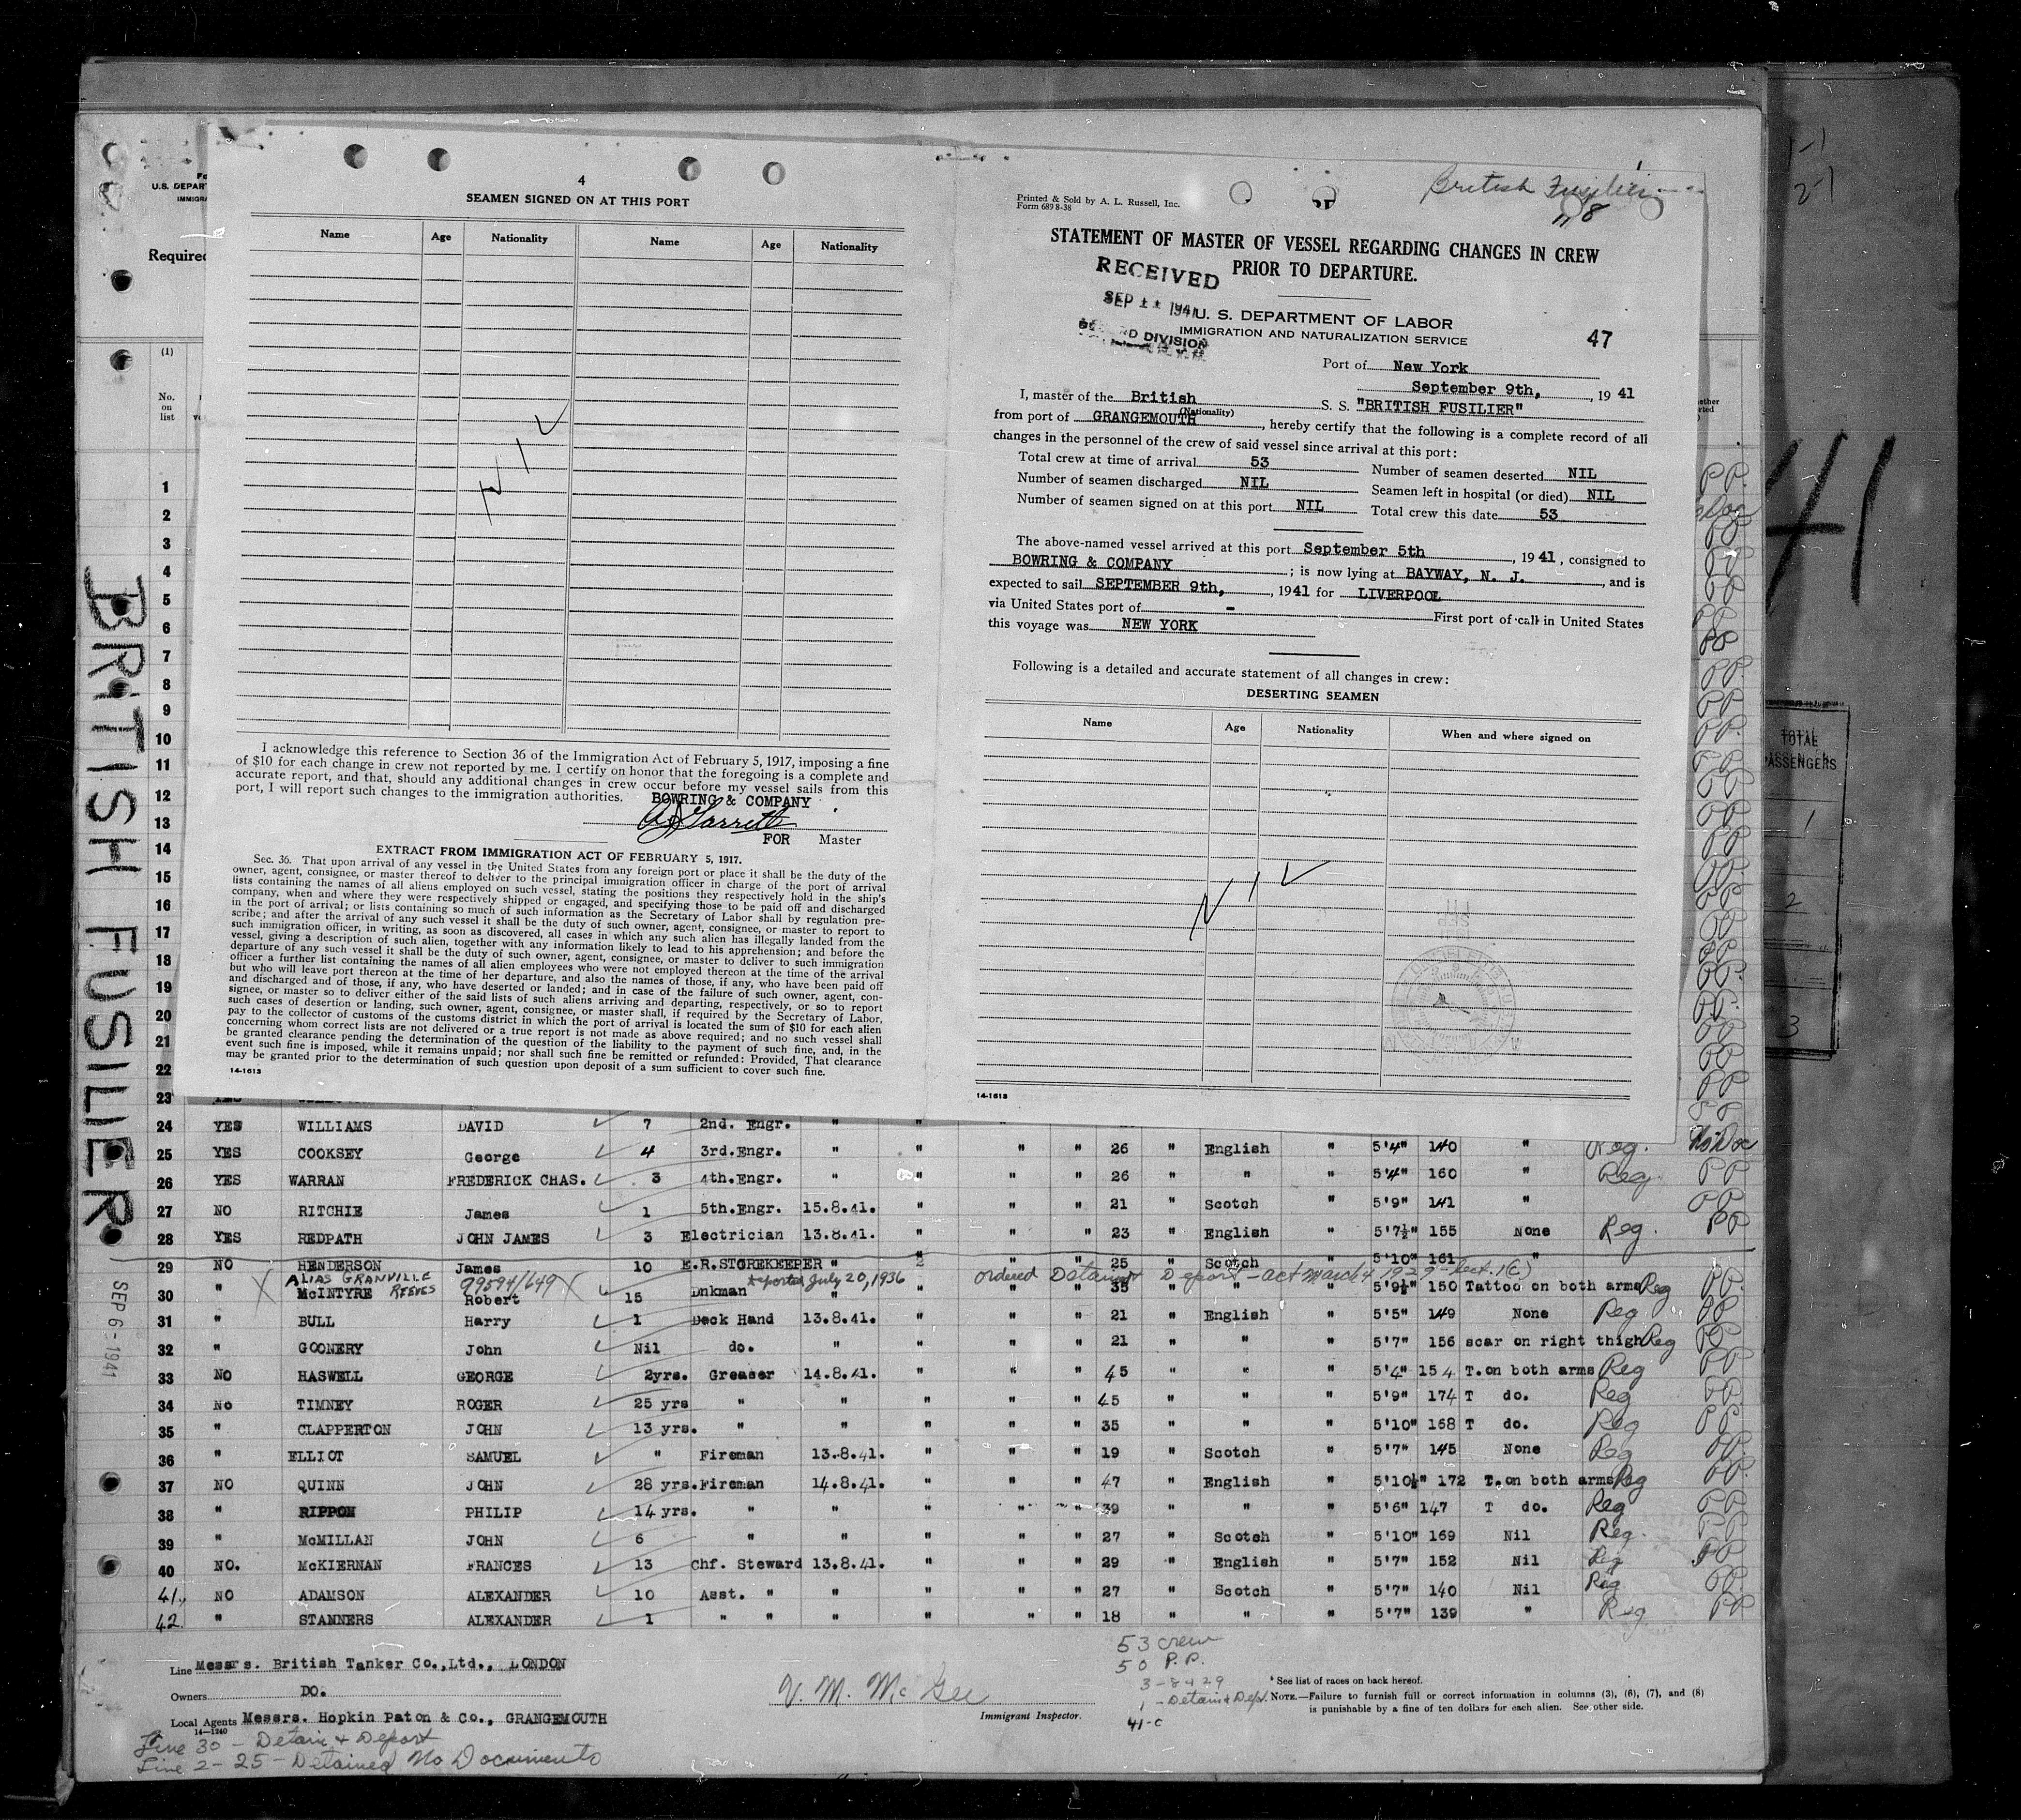 4
SEAMEN SIGNED ON AT THIS PORT
Name Age Nationality Name Age Nationality
NIL
I acknowledge this reference to Section 36 of the Immigration Act of February 5, 1917, imposing a fine
of $10 for each change in crew not reported by me. I certify on honor that the foregoing is a complete and
accurate report, and that, should any additional changes in crew occur before my vessel sails from this
port, I will report such changes to the immigration authorities.
BOWRING & COMPANY
FOR Master
EXTRACT FROM IMMIGRATION ACT OF FEBRUARY 5, 1917.
Sec. 36. That upon arrival of any vessel in the United States from any foreign port or place it shall be the duty of the
owner, agent, consignee, or master thereof to deliver to the principal immigration officer in charge of the port of arrival
lists containing the names of all aliens employed on such vessel, stating the positions they respectively hold in the ship's
company, when and where they were respectively shipped or engaged, and specifying those to be paid off and discharged
in the port of arrival; or lists containing so much of such information as the Secretary of Labor shall by regulation pre-
scribe; and after the arrival of any such vessel it shall be the duty of such owner, agent, consignee, or master to report to
such immigration officer, in writing, as soon as discovered, all cases in which any such alien has illegally landed from the
vessel, giving a description of such alien, together with any information likely to lead to his apprehension; and before the
departure of any such vessel it shall be the duty of such owner, agent, consignee, or master to deliver to such immigration
officer a further list containing the names of all alien employees who were not employed thereon at the time of the arrival
but who will leave port thereon at the time of her departure, and also the names of those, if any, who have been paid off
and discharged and of those, if any, who have deserted or landed; and in case of the failure of such owner, agent, con-
signee, or master so to deliver either of the said lists of such aliens arriving and departing, respectively, or so to report
such cases of desertion or landing, such owner, agent, consignee, or master shall, if required by the Secretary of Labor,
pay to the collector of customs of the customs district in which the port of arrival is located the sum of $10 for each alien
concerning whom correct lists are not delivered or a true report is not made as above required; and no such vessel shall
be granted clearance pending the determination of the question of the liability to the payment of such fine, and, in the
event such fine is imposed, while it remains unpaid; nor shall such fine be remitted or refunded: Provided, That clearance
may be granted prior to the determination of such question upon deposit of a sum sufficient to cover such fine.
14-1613
British Fusilier
Printed & Sold by A. L. Russell, Inc.
Form 689 8-38
STATEMENT OF MASTER OF VESSEL REGARDING CHANGES IN CREW
PRIOR TO DEPARTURE.
RECEIVED
SEP 11 1941
DIVISION
U. S. DEPARTMENT OF LABOR
IMMIGRATION AND NATURALIZATION SERVICE
47
Port of New York
September 9th, , 1941
I, master of the British (Nationality) S. S. "BRITISH FUSILIER"
from port of GRANGEMOUTH , hereby certify that the following is a complete record of all
changes in the personnel of the crew of said vessel since arrival at this port:
Total crew at time of arrival 53 Number of seamen deserted NIL
Number of seamen discharged NIL Seamen left in hospital (or died) NIL
Number of seamen signed on at this port NIL Total crew this date 53
The above-named vessel arrived at this port September 5th , 1941, consigned to
BOWRING & COMPANY ; is now lying at BAYWAY, N. J. , and is
expected to sail SEPTEMBER 9th, , 1941 for LIVERPOOL
via United States port of - First port of call in United States
this voyage was NEW YORK
Following is a detailed and accurate statement of all changes in crew:
DESERTING SEAMEN
Name Age Nationality When and where signed on
NIL
14-1613
U.S. DEPART
IMMIGRA
Required
(1)
No.
on
list
1
2
3
4
5
6
7
8
9
10
11
12
13
14
15
16
17
18
19
20
21
22
23
BRITISH FUSILIER
SEP 6-1941
41
TOTAL
PASSENGERS
1
2
3
24 YES WILLIAMS DAVID 7 2nd. Engr. "
25 YES COOKSEY George 4 3rd.Engr. " " " " 26 " English " 5'4" 140 " Reg. No Doc
26 YES WARRAN FREDERICK CHAS. 3 4th.Engr. " " " " 26 " " " 5'4" 160 " Reg. PP
27 NO RITCHIE James 1 5th.Engr. 15.8.41. " " " 21 " Scotch " 5'9" 141 " PP
28 YES REDPATH JOHN JAMES 3 Electrician 13.8.41. " " " 23 " English " 5'7½" 155 None Reg. PP
29 NO HENDERSON James 10 E.R.STOREKEEPER " " " " 25 " Scotch " 5'10" 161 "
ALIAS GRANVILLE REEVES 99594/649 deported July 20, 1936 ordered Detain & Deport - act March 4 1929 - Sect. 1(c)
30 " McINTYRE Robert 15 Dnkman " " " 35 " " " 5'9½" 150 Tattoo on both arms Reg PP
31 " BULL Harry 1 Deck Hand 13.8.41. " " " 21 " English " 5'5" 149 None Reg PP
32 " GOONERY John Nil do. " " " " 21 " " " 5'7" 156 scar on right thigh Reg PP
33 NO HASWELL GEORGE 2yrs. Greaser 14.8.41. " " " 45 " " " 5'4" 154 T.on both arms Reg PP
34 No TIMNEY ROGER 25 yrs " " " " " 45 " " " 5'9" 174 T do. Reg PP
35 " CLAPPERTON JOHN 13 yrs. " " " " " 35 " " " 5'10" 168 T do. Reg PP
36 " ELLIOT SAMUEL " Fireman 13.8.41. " " " 19 " Scotch " 5'7" 145 None Reg PP
37 NO QUINN JOHN 28 yrs. Fireman 14.8.41. " " " 47 " English " 5'10½" 172 T.on both arms Reg PP
38 " RIPPON PHILIP 14 yrs. " " " " " 39 " " " 5'6" 147 T do. Reg PP
39 " McMILLAN JOHN 6 " " " " " 27 " Scotch " 5'10" 169 Nil Reg. PP
40 NO. McKIERNAN FRANCES 13 Chf. Steward 13.8.41. " " " 29 " English " 5'7" 152 Nil Reg PP
41. NO ADAMSON ALEXANDER 10 Asst. " " " " " 27 " Scotch " 5'7" 140 Nil Reg PP
42. " STANNERS ALEXANDER 1 " " " " " " 18 " " " 5'7" 139 " Reg PP
Line Messrs. British Tanker Co.,Ltd., LONDON
Owners DO.
Local Agents Messrs. Hopkin Paton & Co., GRANGEMOUTH
14-1240
Line 30 - Detain & Deport
Line 2-25 - Detained No Documents
V. M. McGee
Immigrant Inspector.
53 crew
50 P.P.
3-8429
1 - Detain & Dep.
41-C
* See list of races on back hereof.
NOTE.—Failure to furnish full or correct information in columns (3), (6), (7), and (8)
is punishable by a fine of ten dollars for each alien. See other side.